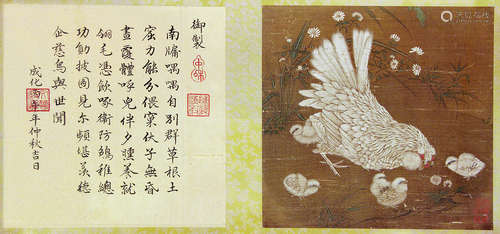 御製
南牖喁喁自別群草根土
窠力能分偎窠伏子無昏
晝覆體呼兒伴夕曛養就
翎毛憑飲啄衛防鷇稚總
功勛披圖見爾頻堪羨德
企慈烏與世聞
成化 年仲秋吉日